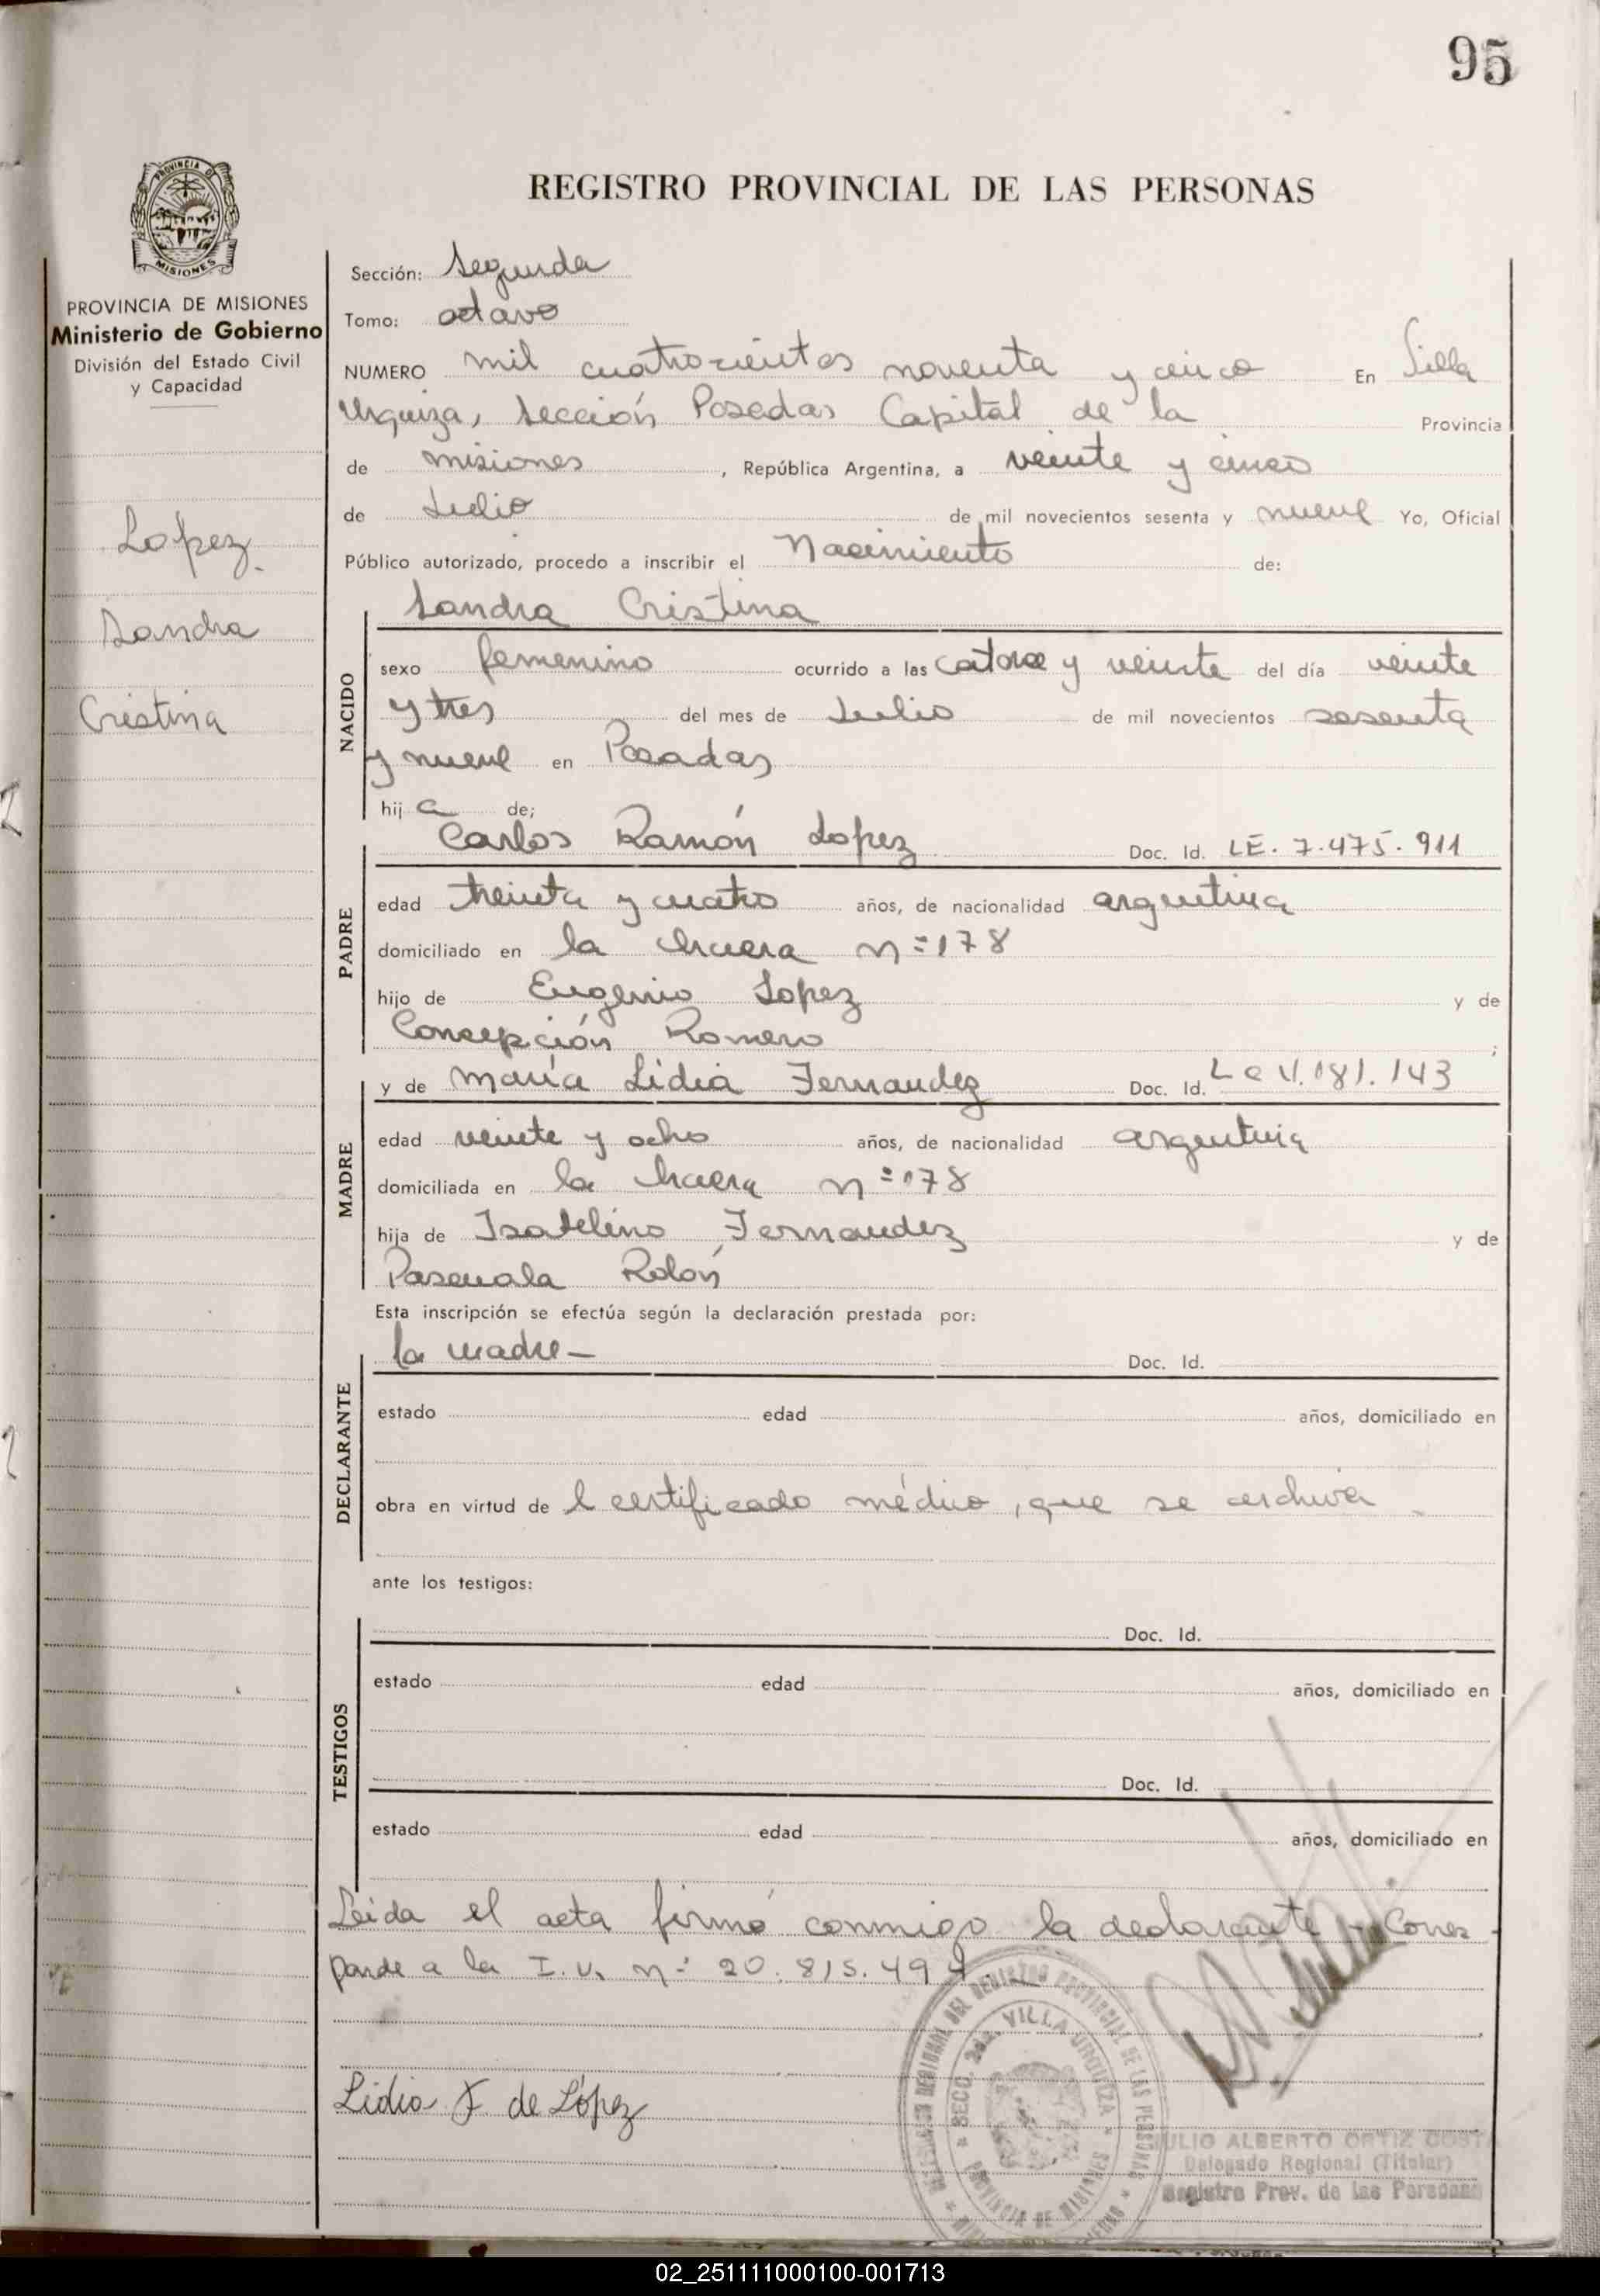 95
PROVINCIA DE
MISIONES
REGISTRO PROVINCIAL DE LAS PERSONAS
PROVINCIA DE MISIONES
Ministerio de Gobierno
División del Estado Civil
y Capacidad
Lopez
Sandra
Cristina
Sección: Segunda
Tomo: octavo
NUMERO mil cuatrocientos noventa y cinco En Villa
Urquiza, Sección Posadas Capital de la Provincia
de misiones, República Argentina, a veinte y cinco
de Julio de mil novecientos sesenta y nueve Yo, Oficial
Público autorizado, procedo a inscribir el Nacimiento de:
Sandra Cristina
NACIDO
sexo femenino ocurrido a las catorce y veinte del día veinte
y tres del mes de Julio de mil novecientos sesenta
y nueve en Posadas
hij a de;
Carlos Ramón Lopez Doc. Id. LE. 7.475.911
PADRE
edad treinta y cuatro años, de nacionalidad argentina
domiciliado en la chacra n=178
hijo de Eugenio Lopez y de
Concepción Romero ;
y de María Lidia Fernandez Doc. Id.
MADRE
edad veinte y ocho años, de nacionalidad argentina
domiciliada en la chacra n=178
hija de Isabelino Fernandez y de
Pascuala Rolón
Esta inscripción se efectúa según la declaración prestada por:
la madre- Doc. Id.
DECLARANTE
estado edad años, domiciliado en
obra en virtud de l certificado médico, que se archiva
ante los testigos:
TESTIGOS
Doc. Id.
estado edad años, domiciliado en
Doc. Id.
estado edad años, domiciliado en
Leida el acta firmó conmigo la declarante - Corres
ponde a la n= 20.815.494
Lidia F. de López
DELEGACION REGIONAL DEL REGISTRO PROVINCIAL DE LAS PERSONAS
SECC. 2da. VILLA URQUIZA
PROVINCIA DE MISIONES
JULIO ALBERTO ORTIZ COSTA
Delegado Regional (Titular)
Registro Prov. de las Personas
02_251111000100-001713